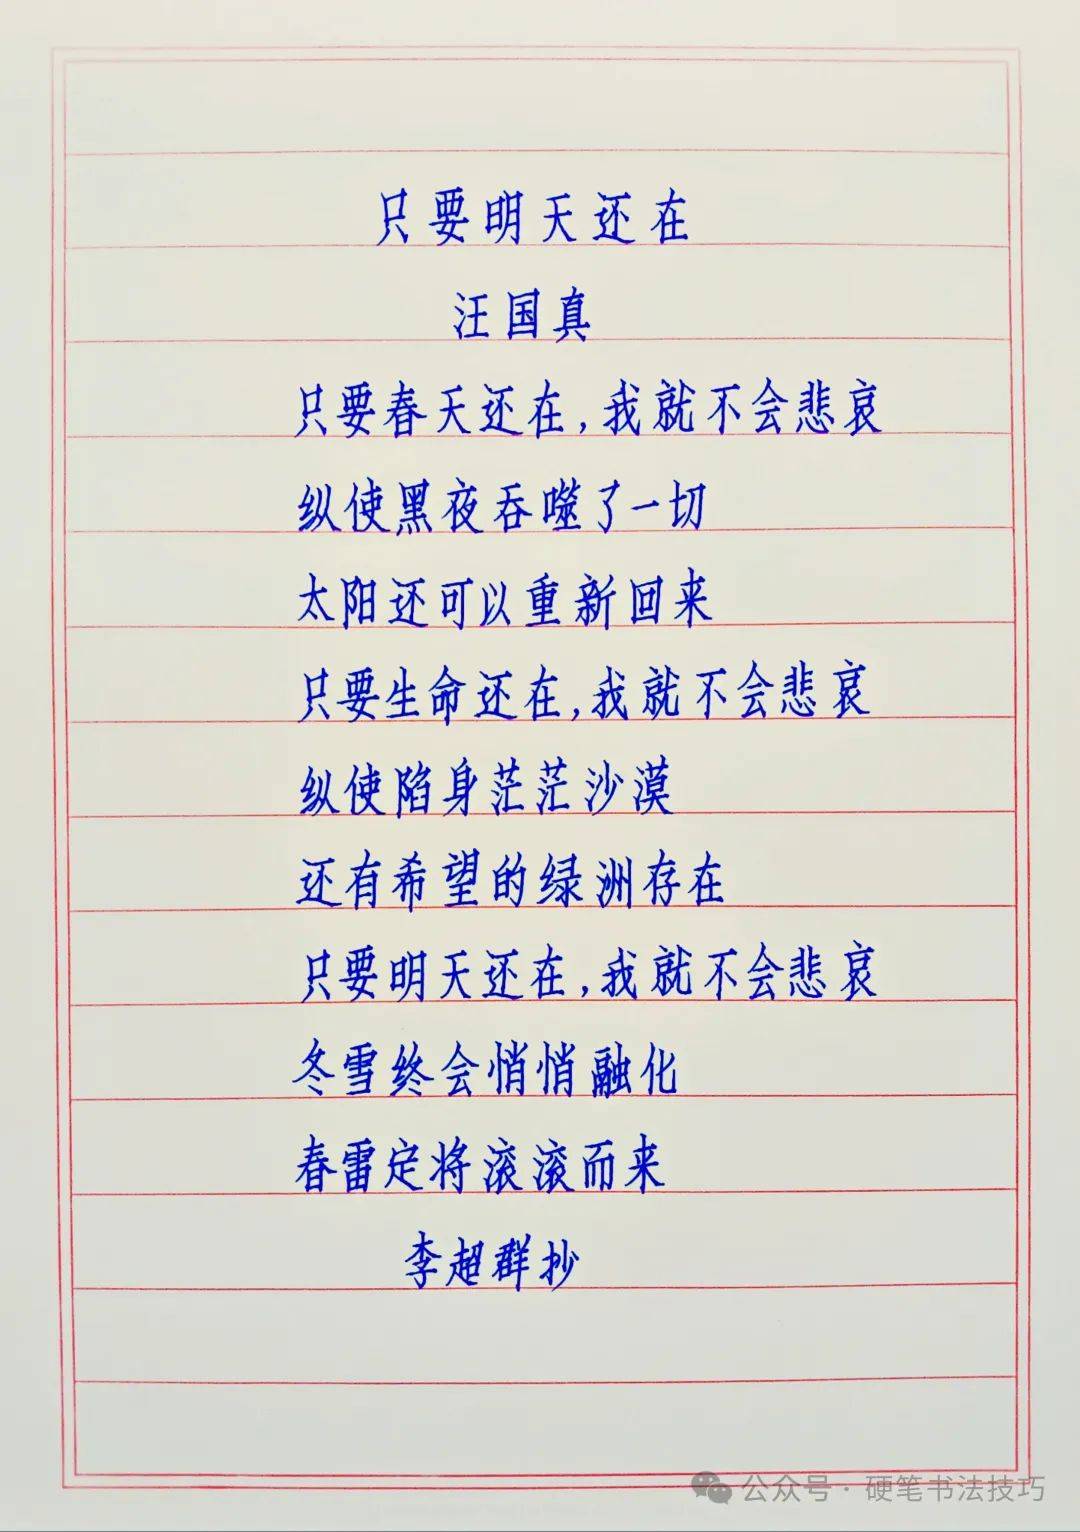 只要明天还在
汪国真
只要春天还在,我就不会悲哀
纵使黑夜吞噬了一切
太阳还可以重新回来
只要生命还在,我就不会悲哀
纵使陷身茫茫沙漠
还有希望的绿洲存在
只要明天还在,我就不会悲哀
冬雪终会悄悄融化
春雷定将滚滚而来
李超群抄
公众号·硬笔书法技巧